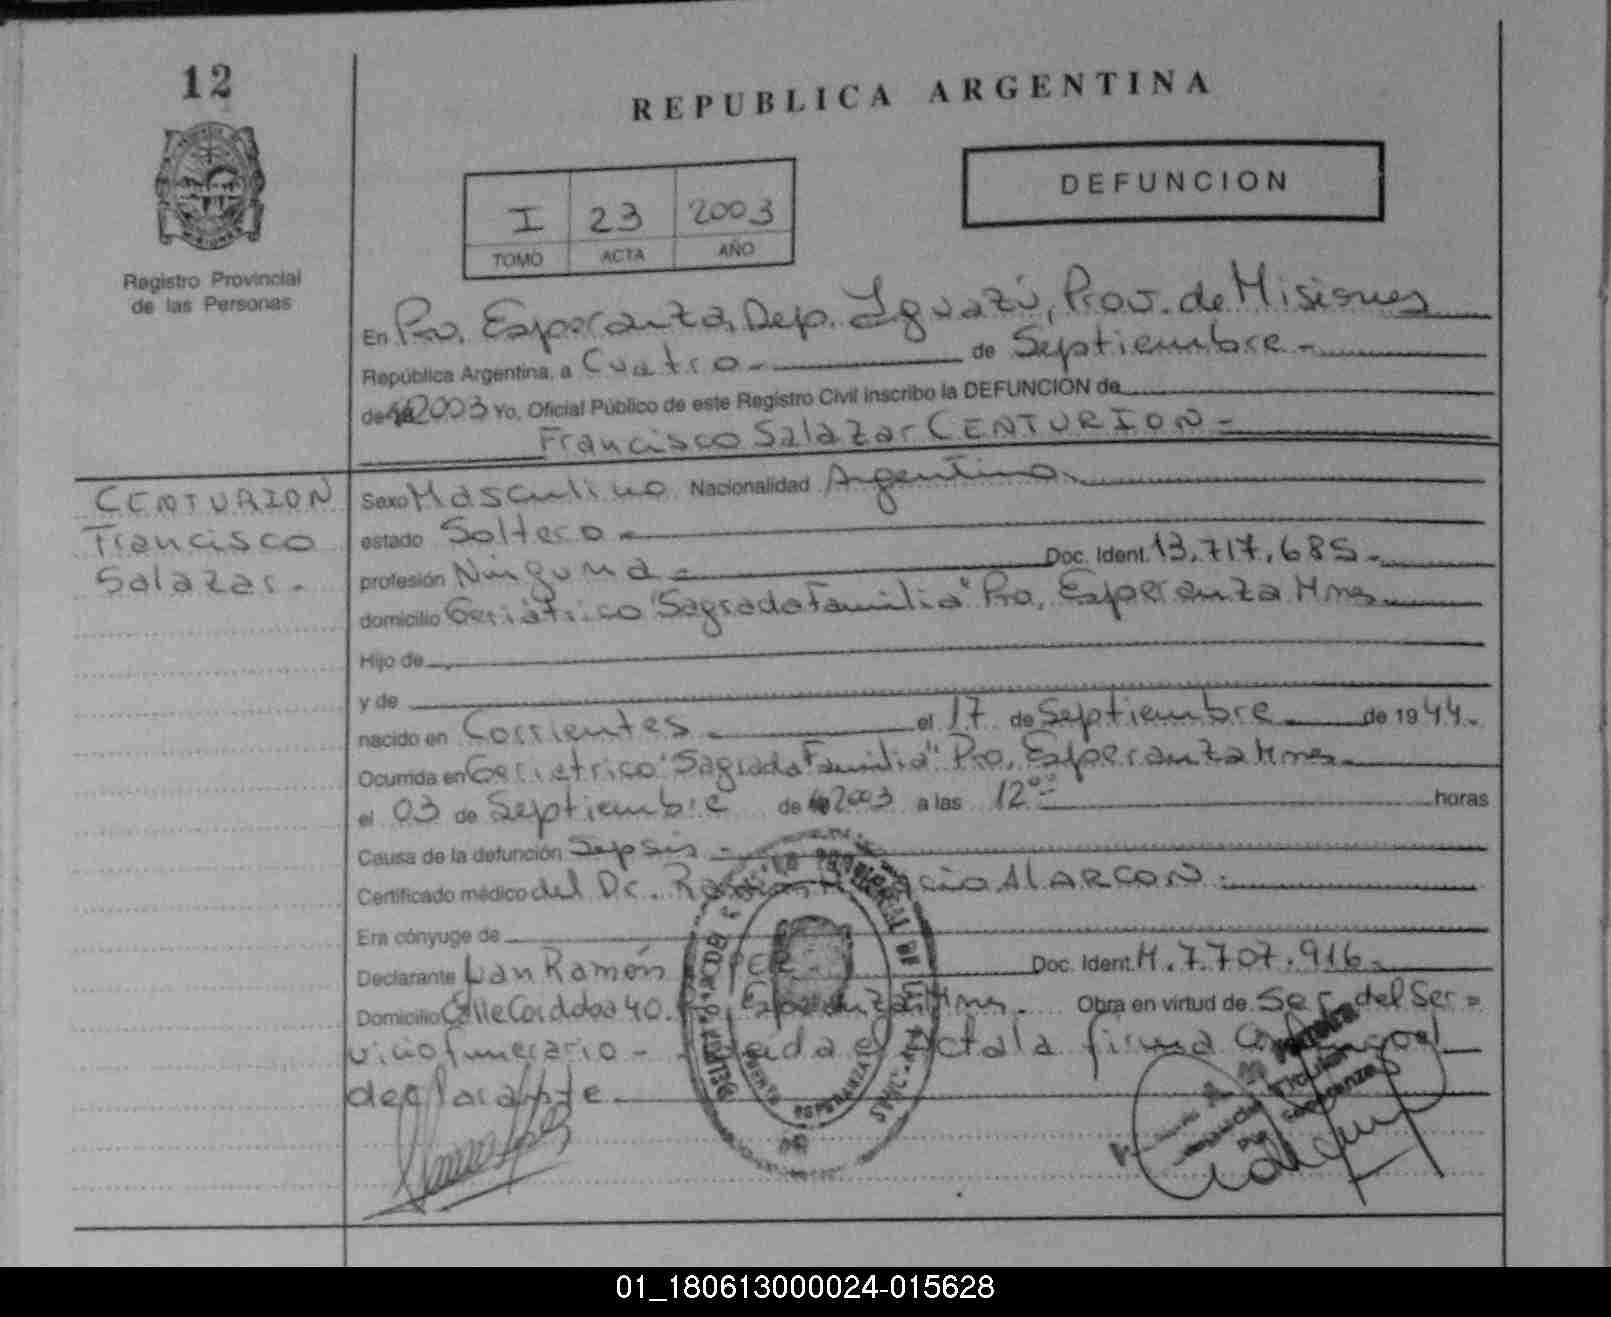 12
REPUBLICA ARGENTINA
DEFUNCION
I 23 2003
TOMO ACTA AÑO
Registro Provincial
de las Personas
En Pto. Esperanza, Dep. Iguazú, Prov. de Misiones
República Argentina, a Cuatro.- de Septiembre.-
de 2003 Yo, Oficial Público de este Registro Civil inscribo la DEFUNCION de
Francisco Salazar CENTURION.-
CENTURION
Francisco
Salazar.-
Sexo Masculino Nacionalidad Argentino.
estado Soltero.-
profesión Ninguna.- Doc. Ident. 13.717.685.-
domicilio Geriátrico "Sagrada Familia" Pto. Esperanza Mnes.
Hijo de
y de
nacido en Corrientes. el 17 de Septiembre de 1944.
Ocurrida en Geriatrico "Sagrada Familia" Pto. Esperanza Mnes.
el 03 de Septiembre de 2003 a las 12°° horas
Causa de la defunción Sepsis.-
Certificado médico del Dr. ALARCON.-
Era cónyuge de
Declarante Juan Ramón Doc. Ident. M. 7.707.916.
Domicilio Calle Cordoba 40. Pto. Esperanza Mnes. Obra en virtud de Ser. del Ser=
vicio funerario.- Leida el Acta la firma
declarante.
PUERTO ESPERANZA
01_180613000024-015628